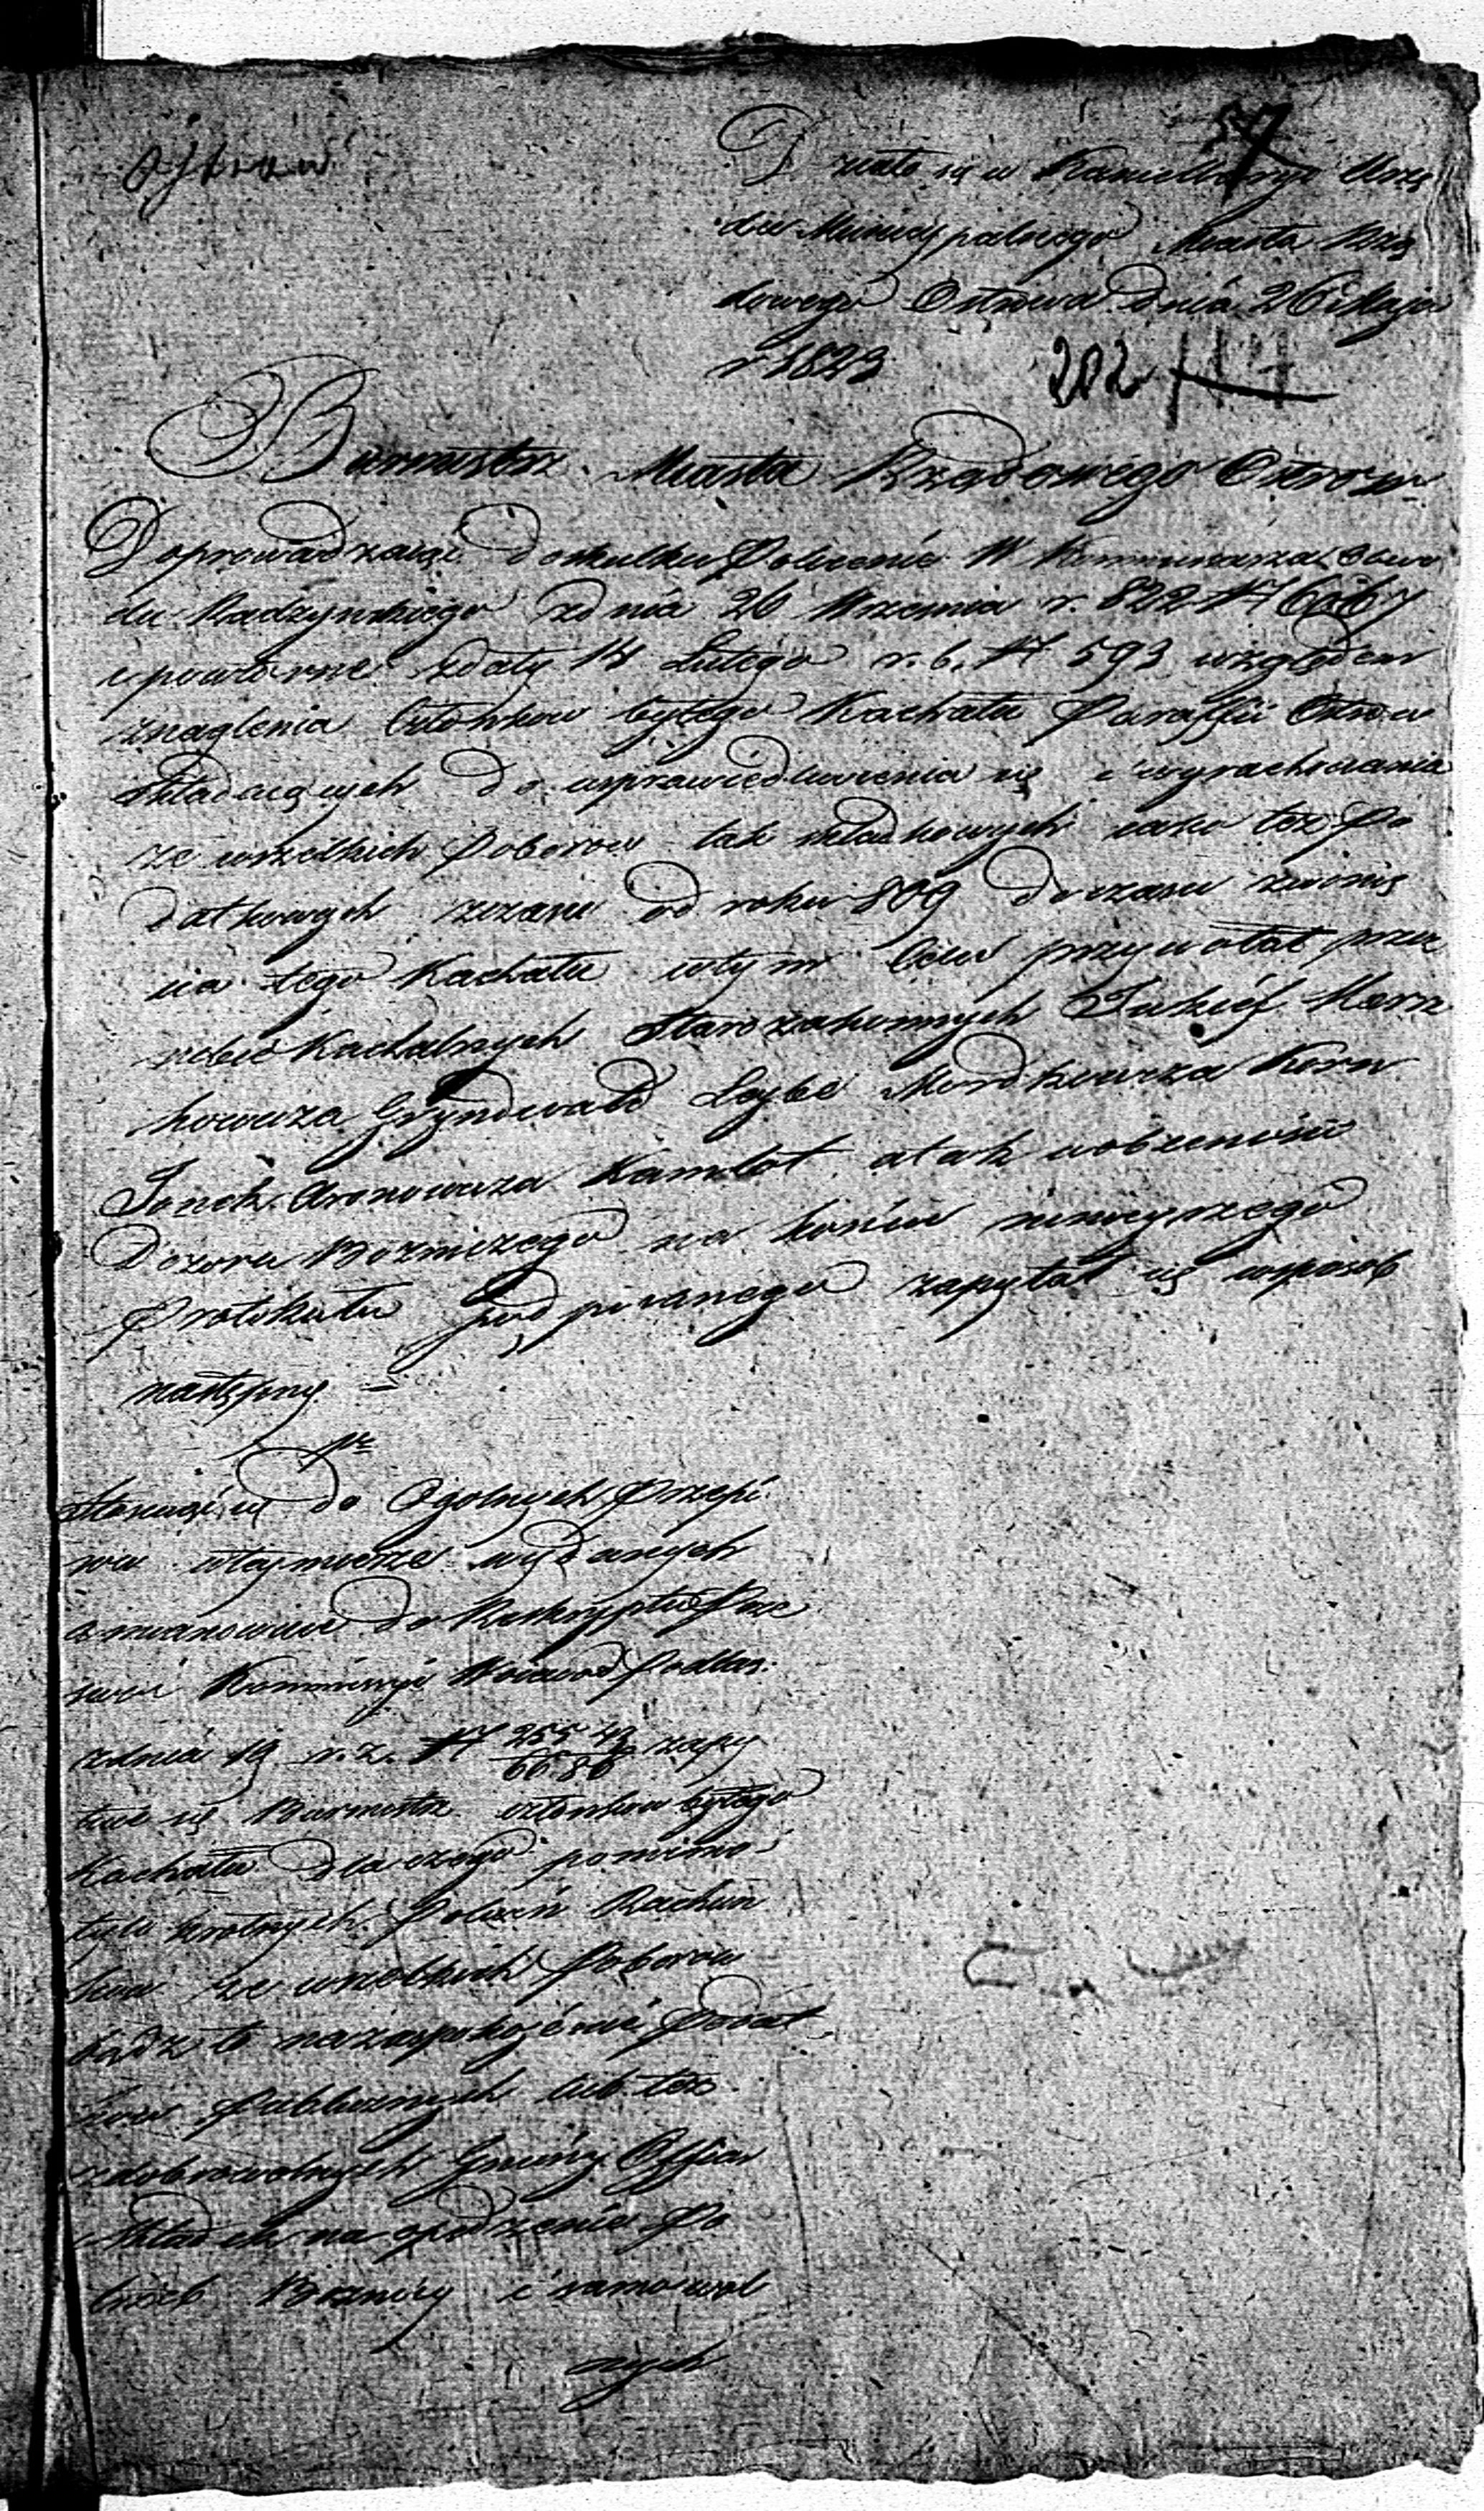 Ostrow
57
Działo się w Kancellaryi Urzę
du Municypalnego Miasta Rzą
dowego Ostrowa dnia 26 Maja
r 1823
202
Burmistrz Miasta Rządowego Ostrowa
Doprowadzaiąc do skutku Polecenie W Kommissarza Obwo
du Radzynskiego z dnia 26 Wrzesnia r. 822 N 6067
i powtorne z daty 14 Lutego r. b. N 593 względem
znaglenia Członkow byłego Kachału Paraffii Ostrow
składaiących do usprawiedliwienia się i wyrachowania
ze wszelkich Poborow tak składkowych iako też Po
datkowych zczasu od roku 809 do czasu zwinię
cia tego Kachału wtym celu przywołał przed
siebie Kachalnych Starozakonnych Judkę Herszkowicza Grynwald Leybę Mordkowicza Korn
Jonek Aronowicza Kamlot a tak w obecności
Dozoru Bozniczego na końcu ninieyszego
Protokułu podpisanego zapytał się w sposob
następny =
1.
Stosuiąc się do Ogolnych Przepi
sow w tey mierze wydanych
a mianowicie do Reskryptu Prze
swi Kommissyi Woiewod Podlas:
z dnia 19 r. z. N 255 43 / 66 86 zapy
tuie się Burmistrz członkow byłego
Kachału dla czego pomimo
tylo krotnych Poleceń Rachun
kow ze wszelkich Poborow
bądz to na zaspokojenie Podat
kow Publicznych lub też
z dobrowolnych Gminy Offiar
Składek na opędzenie Po
trzeb Boznicy i samowol
nych